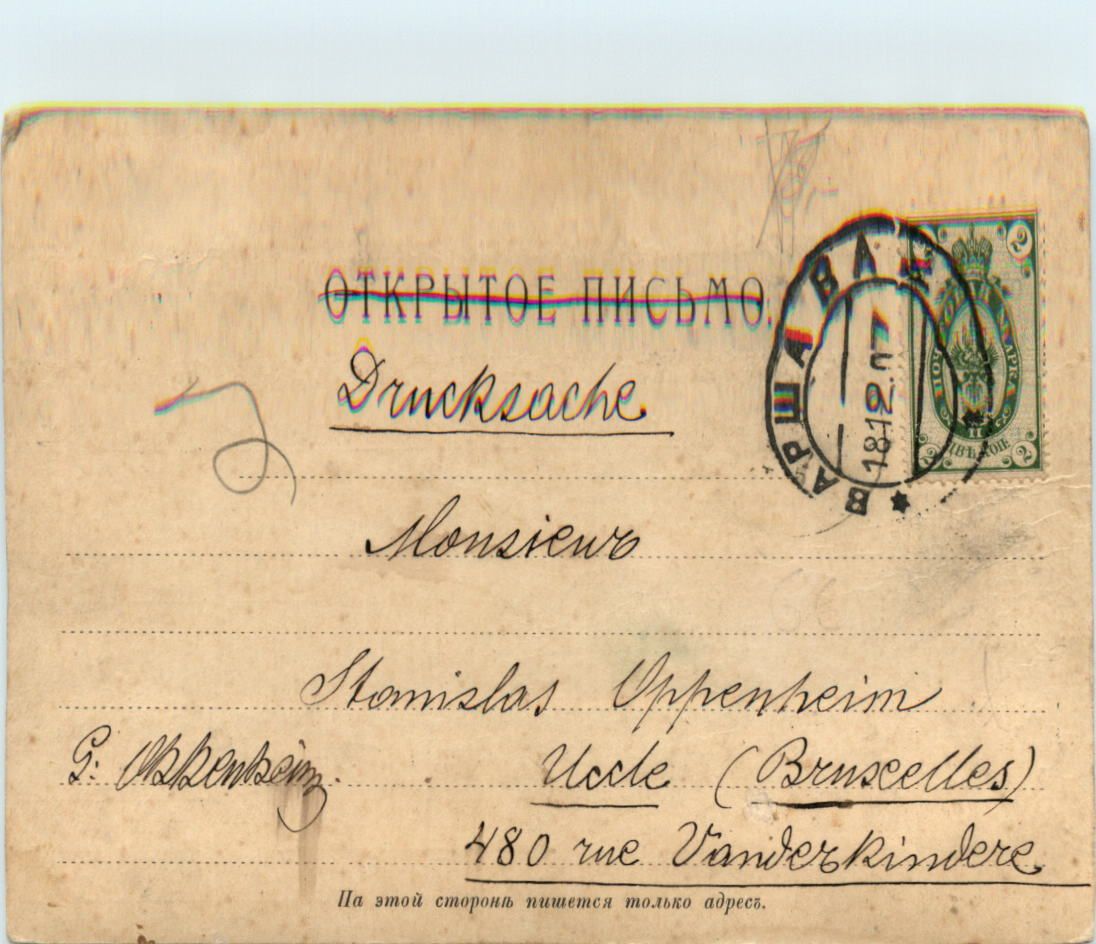 ОТКРЫТОЕ ПИСЬМО.
ВАРШАВА
18 12 07
2
ДВѢ КОП.
2 2
Drucksache
Monsieur
Stanislas Oppenheim
G: Oppenheim.
Uccle (Bruxelles)
480 rue Vanderkindere
На этой сторонѣ пишется только адресъ.